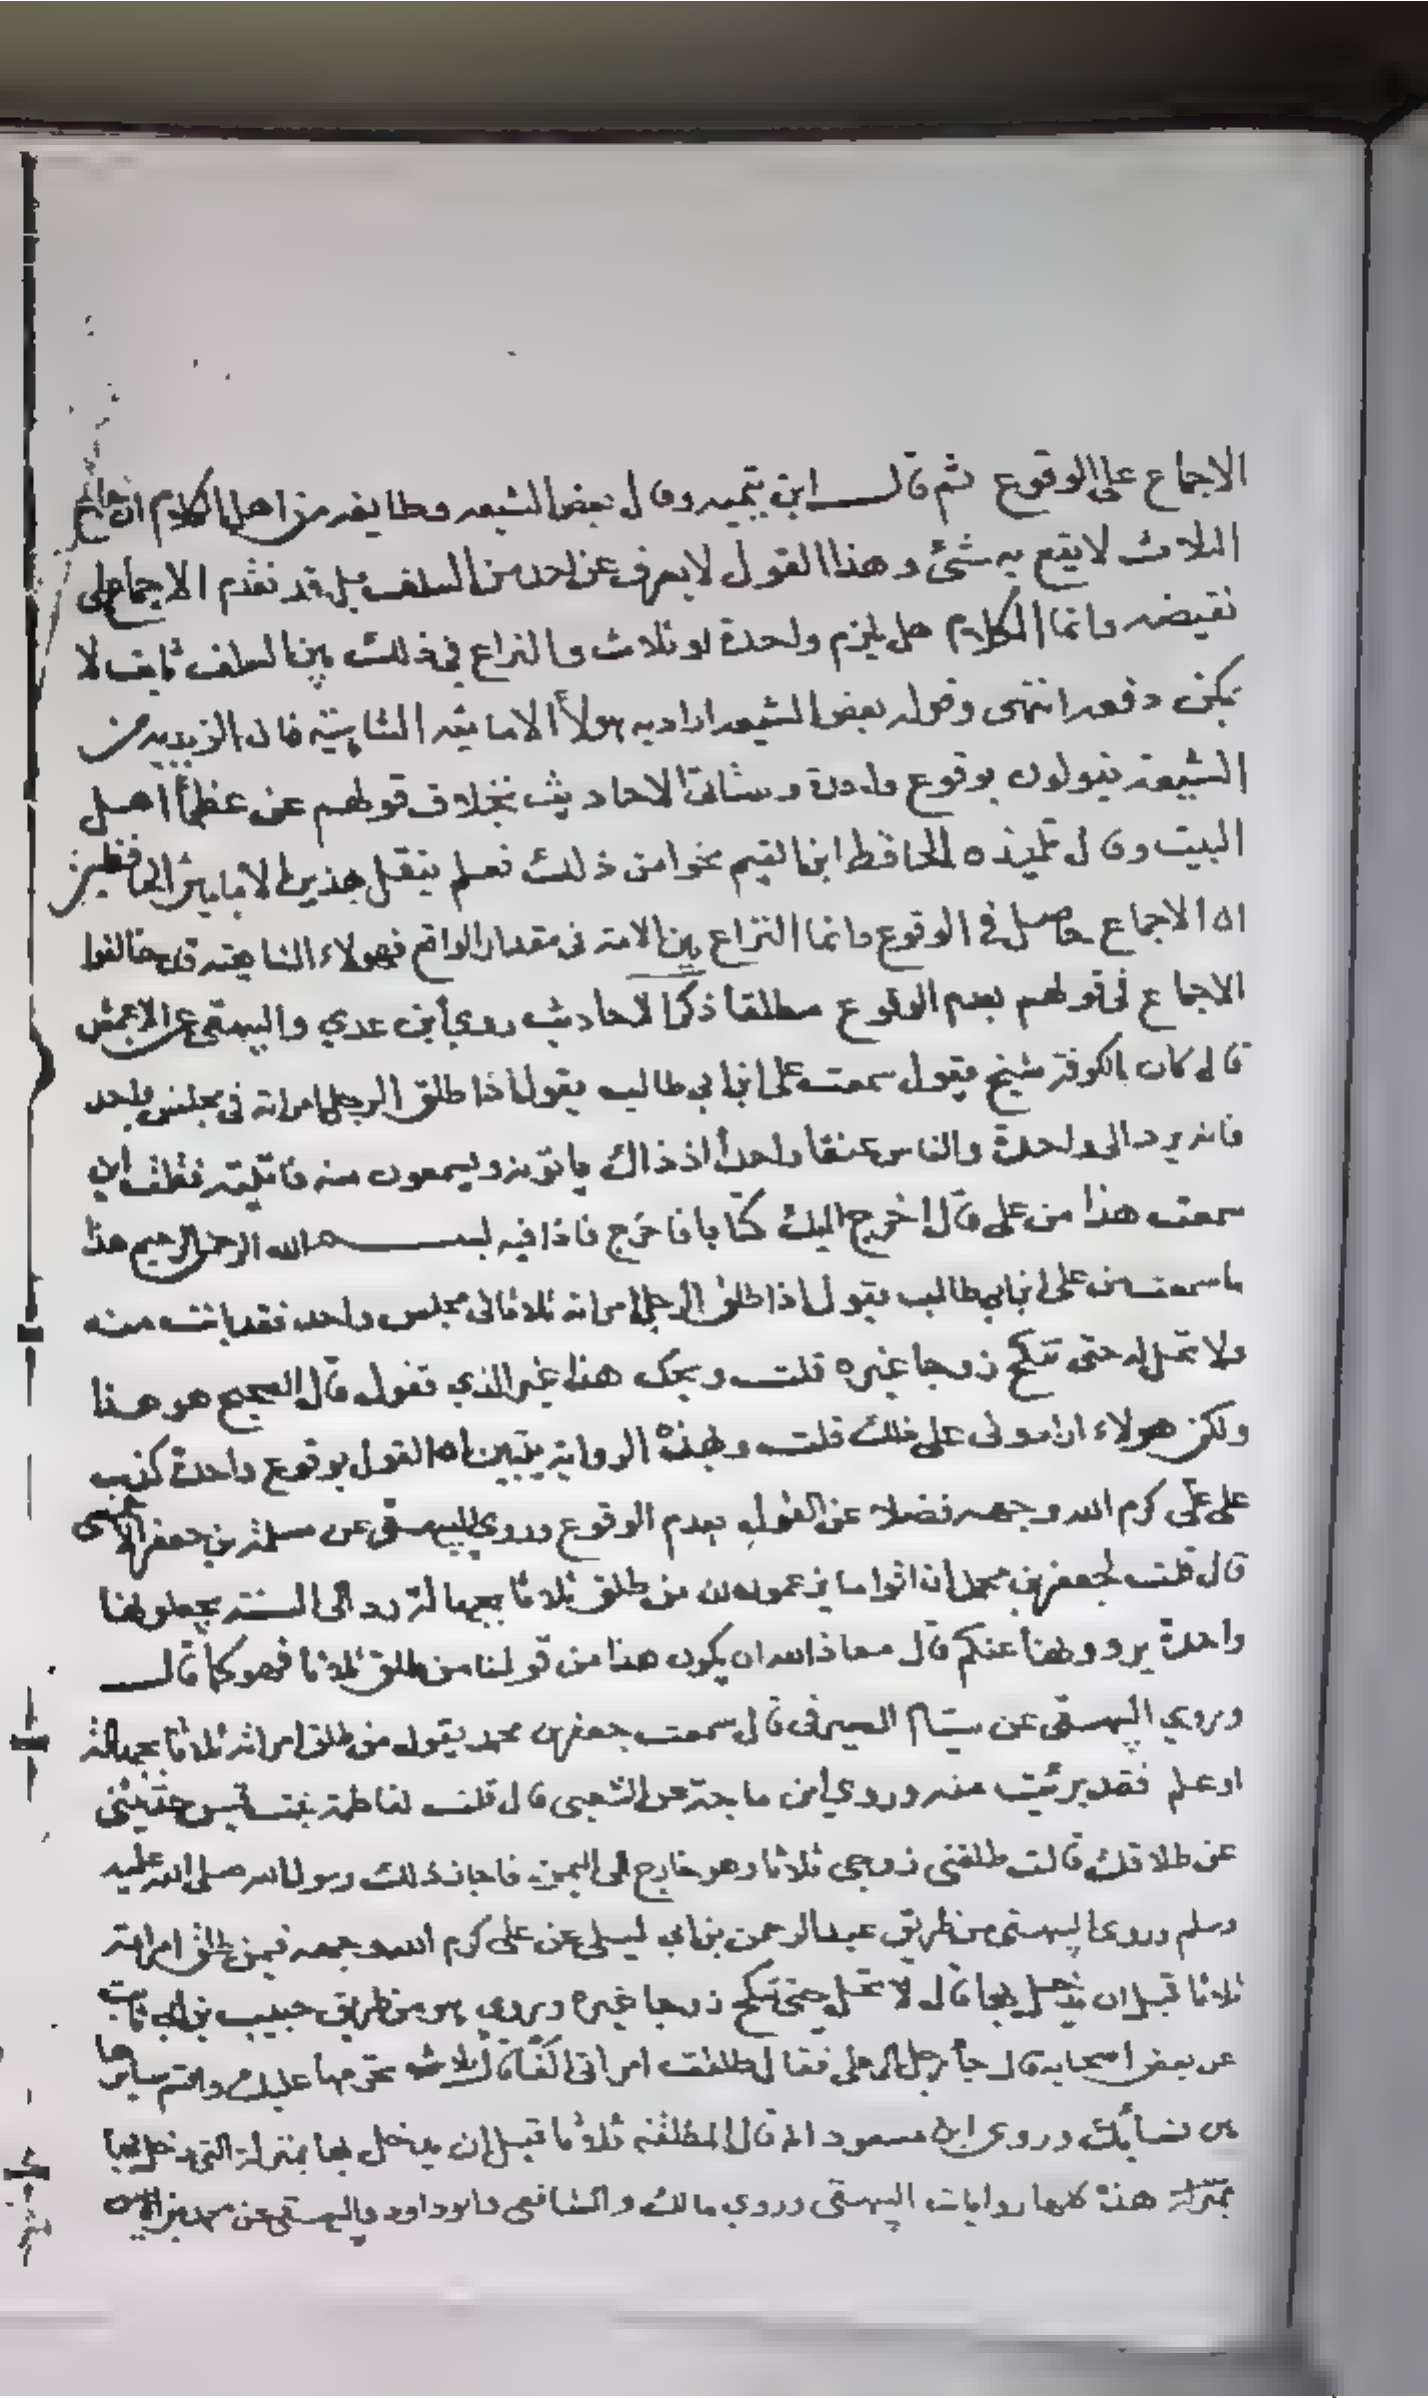 الاجماع على الوقوع ثم قال ابن تيميه وقال بعض الشيعه وطايفه من اهل الكلام ان جامع
الثلاث لا يقع به شئ وهذا القول لا يعرف عن احد من السلف بل قد تقدم الاجماع على
نقيضه وانما الكلام هل يلزم واحدة او ثلاث والنزاع في ذلك بين السلف ثابت لا
يمكن دفعه انتهى وقوله بعض الشيعه اراد به هولاأ الاماميه فان الزيديه من
الشيعة فيقولون بوقوع واحدة وستاتى الاحاديث بخلاف قولهم عن عظمأ اهل
البيت وقال تلميذه الحافظ ابن القيم نحوا من ذلك فعلم بنقل هذين الامامين الحافظين
ان الاجماع حاصل في الوقوع وانما النزاع بين الامة في مقدار الواقع فهولاء قد خالفوا
الاجماع في قولهم بعدم الوقوع مطلقا ذكر الاحاديث روي ابن عدي والبيهقي عن الاعمش
قال كان بالكوفة شيخ يقول سمعت على ابن ابي طالب يقول اذا طلق الرجل امراته في مجلس واحد
فانه يرد الى واحدة والناس عنقا واحدا اذ ذاك ياتونه ويسمعون منه فاتيته فقلت اين
سمعت هذا من على قال اخرج اليك كتابا فاخرج فاذا فيه بسم الله الرحمن الرحيم هذا
ما سمعت من على ابن ابي طالب يقول اذا طلق الرجل امراته ثلاثا في مجلس واحد فقد بانت منه
ولا تحل له حتى تنكح زوجا غيره قلت ويحك هذا غير الذي تقول قال الصحيح هو هذا
ولكن هولاء ارادوني على ذلك قلت وبهذه الرواية يتبين ان القول بوقوع واحدة كذب
على علي كرم الله وجهه فضلا عن القول بعدم الوقوع وروي البيهقي عن مسلمة بن جعفر الاحمسي
قال قلت لجعفر بن محمد ان اقواما يزعمون ان من طلق ثلاثا بجهالة رد الى السنة يجعلونها
واحدة يروونها عنكم قال معاذ الله ان يكون هذا من قولنا من طلق ثلاثا فهو كما قال
وروي البيهقي عن بسام الصيرفي قال سمعت جعفر بن محمد يقول من طلق امراته ثلاثا بجهالة
او علم فقد برئت منه وروي ابن ماجة عن الشعبي قال قلت لفاطمة بنت قيس حدثيني
عن طلاقك قالت طلقني زوجي ثلاثا وهو خارج الى اليمن فاجاز ذلك رسول الله صلى الله عليه
وسلم وروى البيهقي من طريق عبد الرحمن بن ابي ليلى عن على كرم الله وجهه فيمن طلق امراته
ثلاثا قبل ان يدخل بها قال لا تحل حتى تنكح زوجا غيره وروي من طريق حبيب بن ابي ثابت
عن بعض اصحابه قال جأ رجل الى على فقال طلقت امراتي الفا قال ثلاث تحرمها عليك واقسم سايرها
بين نسايك وروى ابن مسعود انه قال المطلقة ثلاثا قبل ان يدخل بها بمنزلة التي دخل بها
بمنزلة هذه كلها روايات البيهقي وروي مالك والشافعي وابو داود والبيهقي عن محمد بن اياس